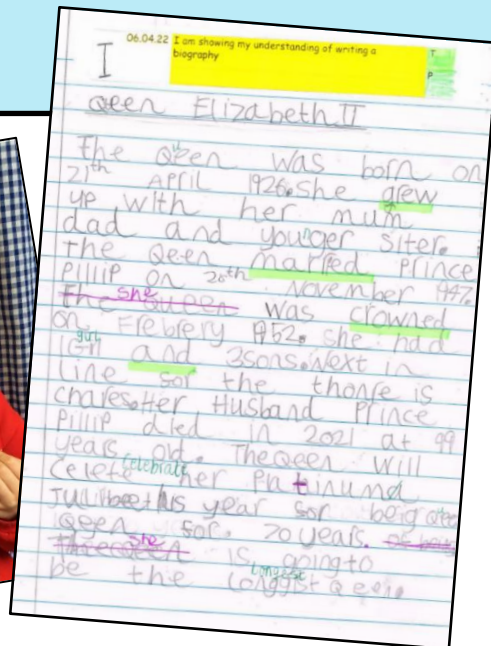 I
06.04.22 I am showing my understanding of writing a
biography
T
P
Qeen Elizabeth II
The Qeen was born on
21th April 1926. she grew
up with her mum
dad and younger siter.
The Qeen married Prince
Pillip on 20th November 1947.
The Queen she was crowned
on Frebrery 1952. she had
1Girl and 3sons. Next in
line for the thonre is
chares. Her Husband Prince
Pillip died in 2021 at 99
years old. The Qeen will
Celebrate her Platinumd
this year for beig Qeen
Qeen for 70 years.
she is going to
be the longgist Qeen.